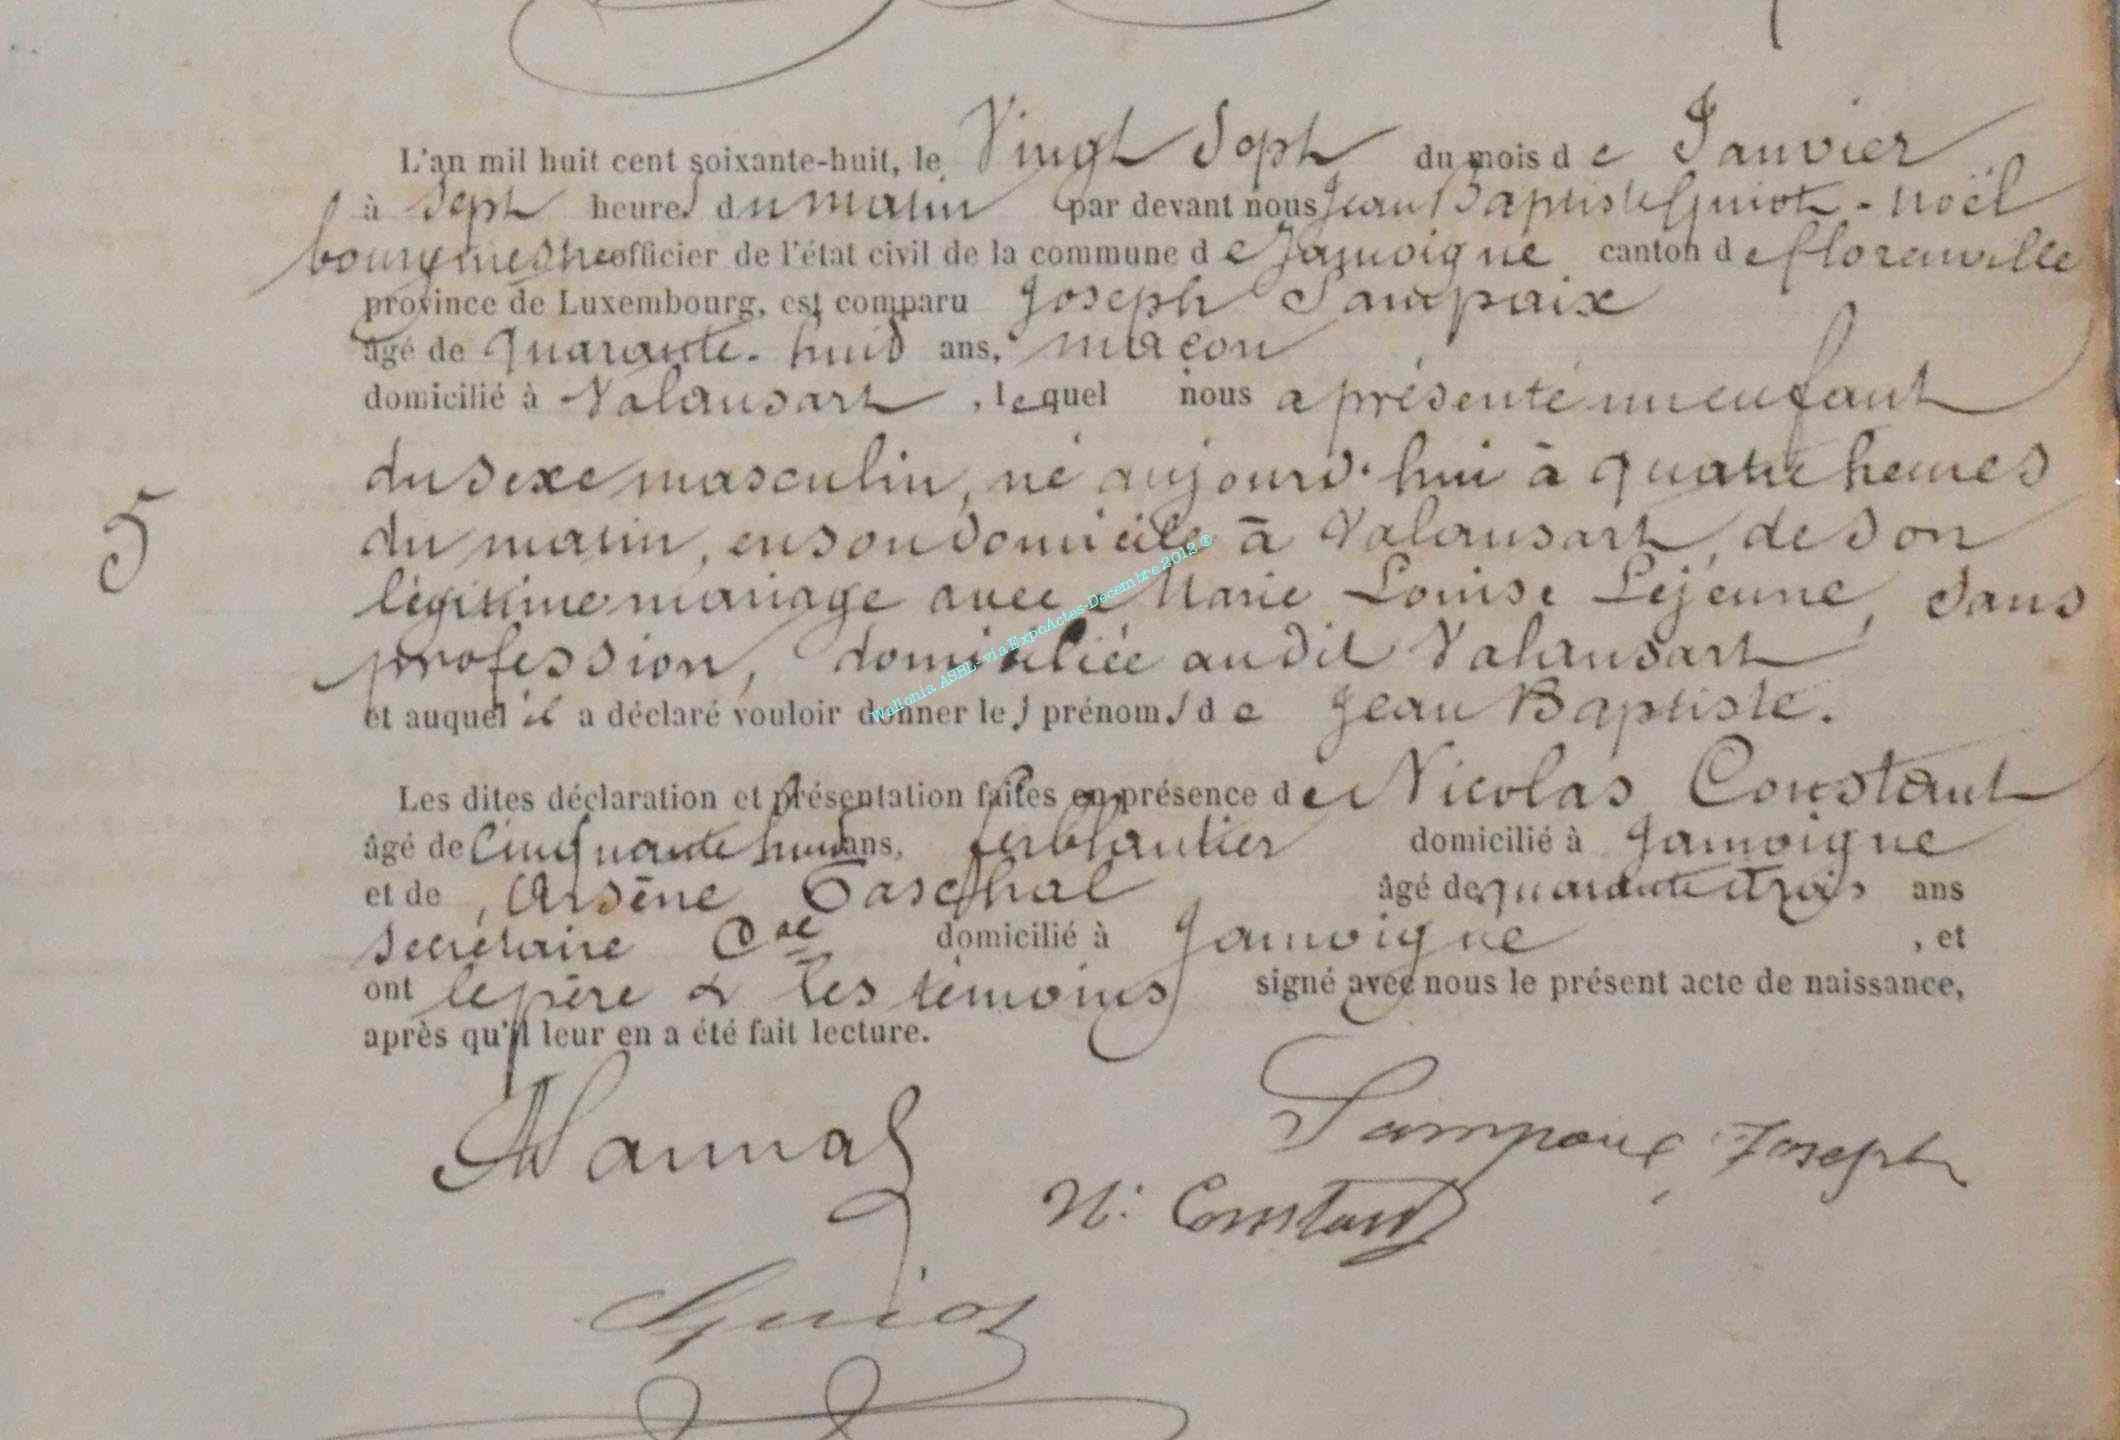 L'an mil huit cent soixante-huit, le Vingt Sept du mois de Janvier
à Sept heures du matin par devant nous Jean Baptiste Guiot - Noël
bourgmestre officier de l'état civil de la commune de Jamoigne canton de florenville
province de Luxembourg, est comparu Joseph Sampaix
âgé de quarante-huit ans, maçon
domicilié à Valansart, lequel nous a présenté un enfant
du sexe masculin, né aujourd'hui à quatre heures
du matin, en son domicile à Valansart, de son
5
légitime mariage avec Marie Louise Lejeune, sans
profession, domiciliée audit Valansart
et auquel il a déclaré vouloir donner les prénoms de Jean Baptiste.
Wallonia ASBL - via ExpoActes-Decembre 2012 ®
Les dites déclaration et présentation faites en présence de Nicolas Constant
âgé de Cinquante huit ans, ferblantier domicilié à Jamoigne
et de Arsène âgé de quarante trois ans
Secrétaire Cal domicilié à Jamoigne, et
ont le père & les témoins signé avec nous le présent acte de naissance,
après qu'il leur en a été fait lecture.
Sampaix Joseph
N. Constant
Guiot